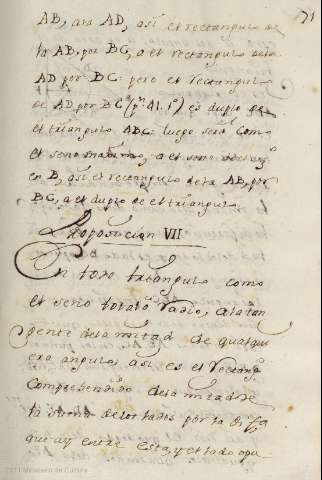 71
AB, ara AD, asi el rectangulo de
la AB, por BC, a el rectangulo dela
AD por BC: pero el rectangulo
de AD por BC (pr. 41. 1º) es duplo de
el triangulo ABC: luego sera como
el seno maximo, a el seno del ang
en B, asi el rectangulo dela AB, por
BC, a el duplo de el triangulo.
Proposicion VII
En todo triangulo como
el seno total, o radio, a la tan
gente dela mitad de qualqui
era angulo; asi es el rectang.
Comprehendido dela mitad de
la de los lados por la
que ay entre esta, y el lado opu-
2011 Ministerio de Cultura